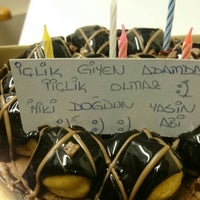 İÇLİK GİYEN ADAMDA
PİÇLİK OLMAZ :)
İHİKİ DOĞDUN YASİN
:) :) :) ABİ